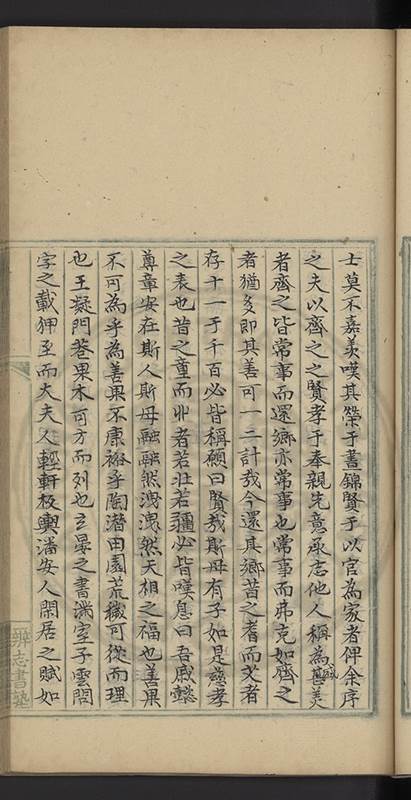 士莫不嘉羡嘆其榮于晝錦賢于以官為家者俾余序
之夫以齊之之賢孝于奉親先意承志他人稱為盛善美
者齊之皆常事而還鄉亦常事也常事而弗克如齊之
者猶多即其善可一二計哉今還其鄉昔之耆而艾者
存十一于千百必皆稱願曰賢哉斯母有子如是慈孝
之表也昔之童而丱者若壯若彊必皆嘆息曰吾戚懿
尊章安在斯人斯母融融然洩洩然天相之福也善果
不可為乎為善果不康裕乎陶潛田園荒穢可從而理
也王凝門巷果木可方而列也玄晏之書滿室子雲問
字之載狎至而大夫人輕軒板輿潘安人閑居之賦如
辨志書塾